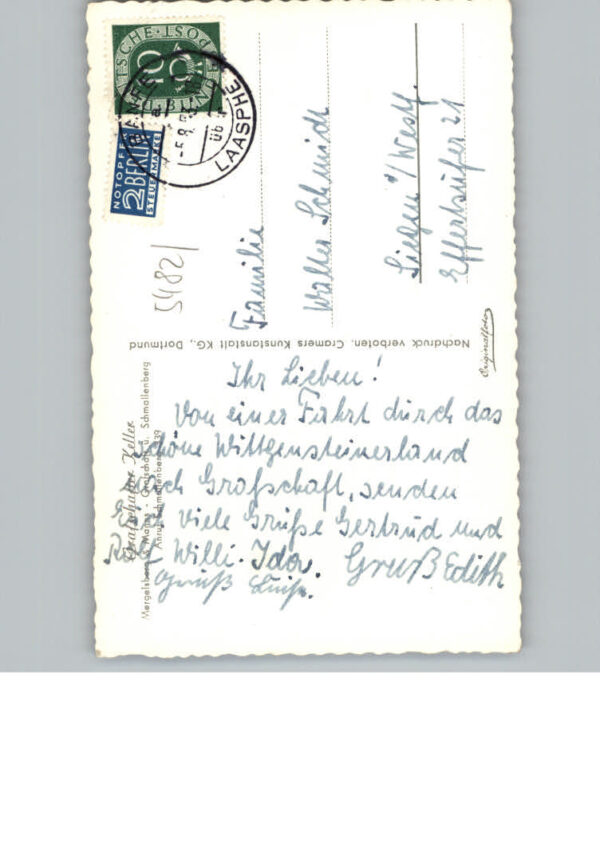 DEUTSCHE BUNDESPOST
10
NOTOPFER
2 BERLIN
STEUERMARKE
BANFE
-5.8.
üb
LAASPHE
5482/
Familie
Walter Schmidt
Siegen i/Westf.
Effertsufer 21
Nachdruck verboten, Cramers Kunstanstalt KG., Dortmund
Originalfoto
Grafschafter Keller
Mergelsberg & Manns - Grafschaft ü. Schmallenberg
Anruf: Schmallenberg 339
Ihr Lieben!
Von einer Fahrt durch das
schöne Wittgensteinerland
nach Grafschaft, senden
Euch viele Grüße Gertrud und
Rolf Willi. Ida. Gruß Edith
Gruß Luise.